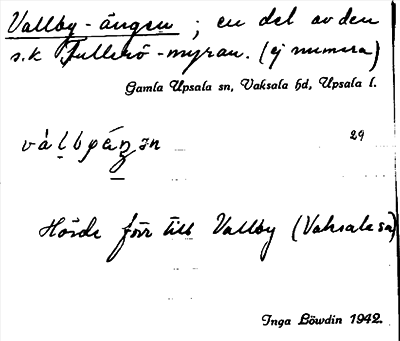 Vallby-ängen ; en del av den
s.k Fullerö-myran. (ej numera)
Gamla Upsala sn, Vaksala hd, Upsala l.
29
Hörde förr till Vallby (Vaksala sn)
Inga Löwdin 1942.